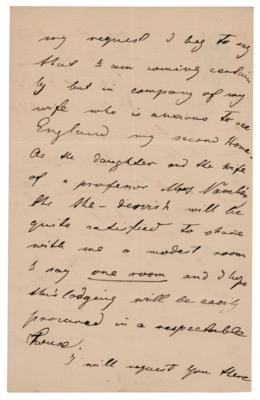 my request I beg to say
that I am coming certain
ly but in company of my
wife who is anxious to see
England my second Home.
As the daughter and the wife
of a professor Mrs.
the will be
quite satisfied to share
with me a modest room
I say one room and I hope
this lodging will be easily
procured in a respectable
house.
I will request you there